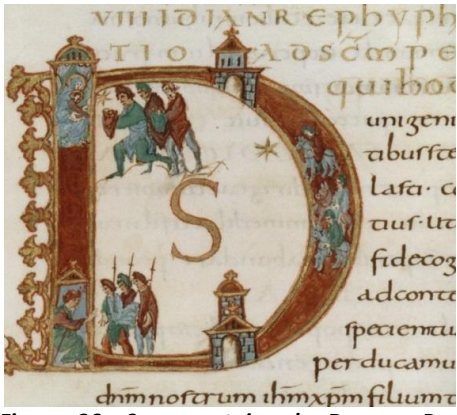 VIIII ID IAN REPHYPH
TIO AD SCM PE
D S
qui hod
unigeni
tibus ste
tius · ut
fide cog
ad conte
speciem tu
perducamu
dnm nostrum ihm xpm filium t